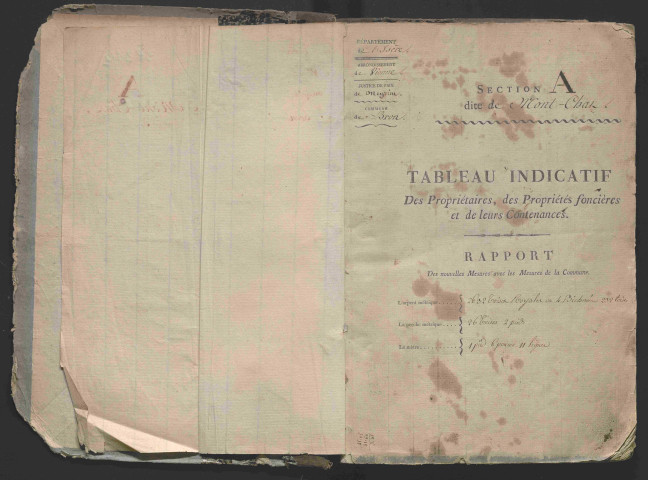 DÉPARTEMENT
de l'Isère
ARRONDISSEMENT
de Vienne
JUSTICE DE PAIX
de Meyzieu
COMMUNE
de Bron
SECTION A
dite de Mont-Chat
TABLEAU INDICATIF
Des Propriétaires, des Propriétés foncières
et de leurs Contenances.
RAPPORT
Des nouvelles Mesures avec les Mesures de la Commune.
L'arpent métrique
La perche métrique 26 toises 2 pieds
Le mètre 3 pieds 11 lignes